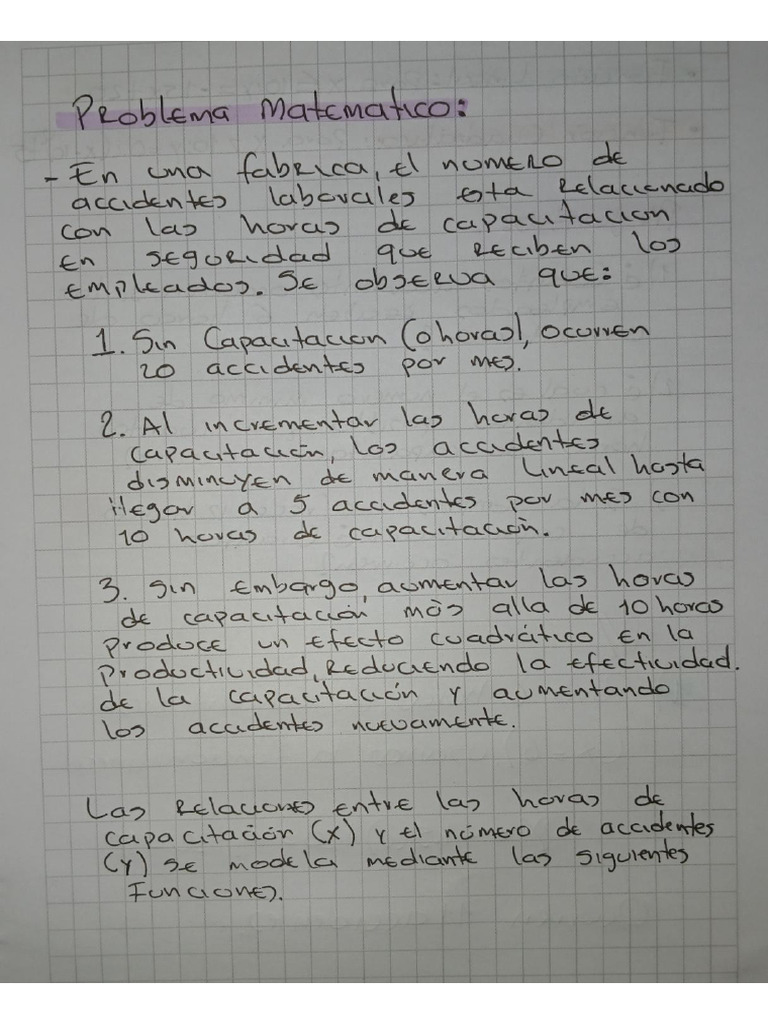 Problema Matematico:
- En una fabrica, el numero de
accidentes laborales esta relacionado
con las horas de capacitacion
en seguridad que reciben los
empleados. Se observa que:
1. Sin Capacitacion (0 horas), ocurren
20 accidentes por mes.
2. Al incrementar las horas de
capacitación, los accidentes
disminuyen de manera lineal hasta
llegar a 5 accidentes por mes con
10 horas de capacitación.
3. Sin embargo, aumentar las horas
de capacitación más alla de 10 horas
produce un efecto cuadrático en la
productividad, reduciendo la efectividad.
de la capacitación y aumentando
los accidentes nuevamente.
Las relaciones entre las horas de
capacitación (x) y el número de accidentes
(y) se modela mediante las siguientes
funciones.